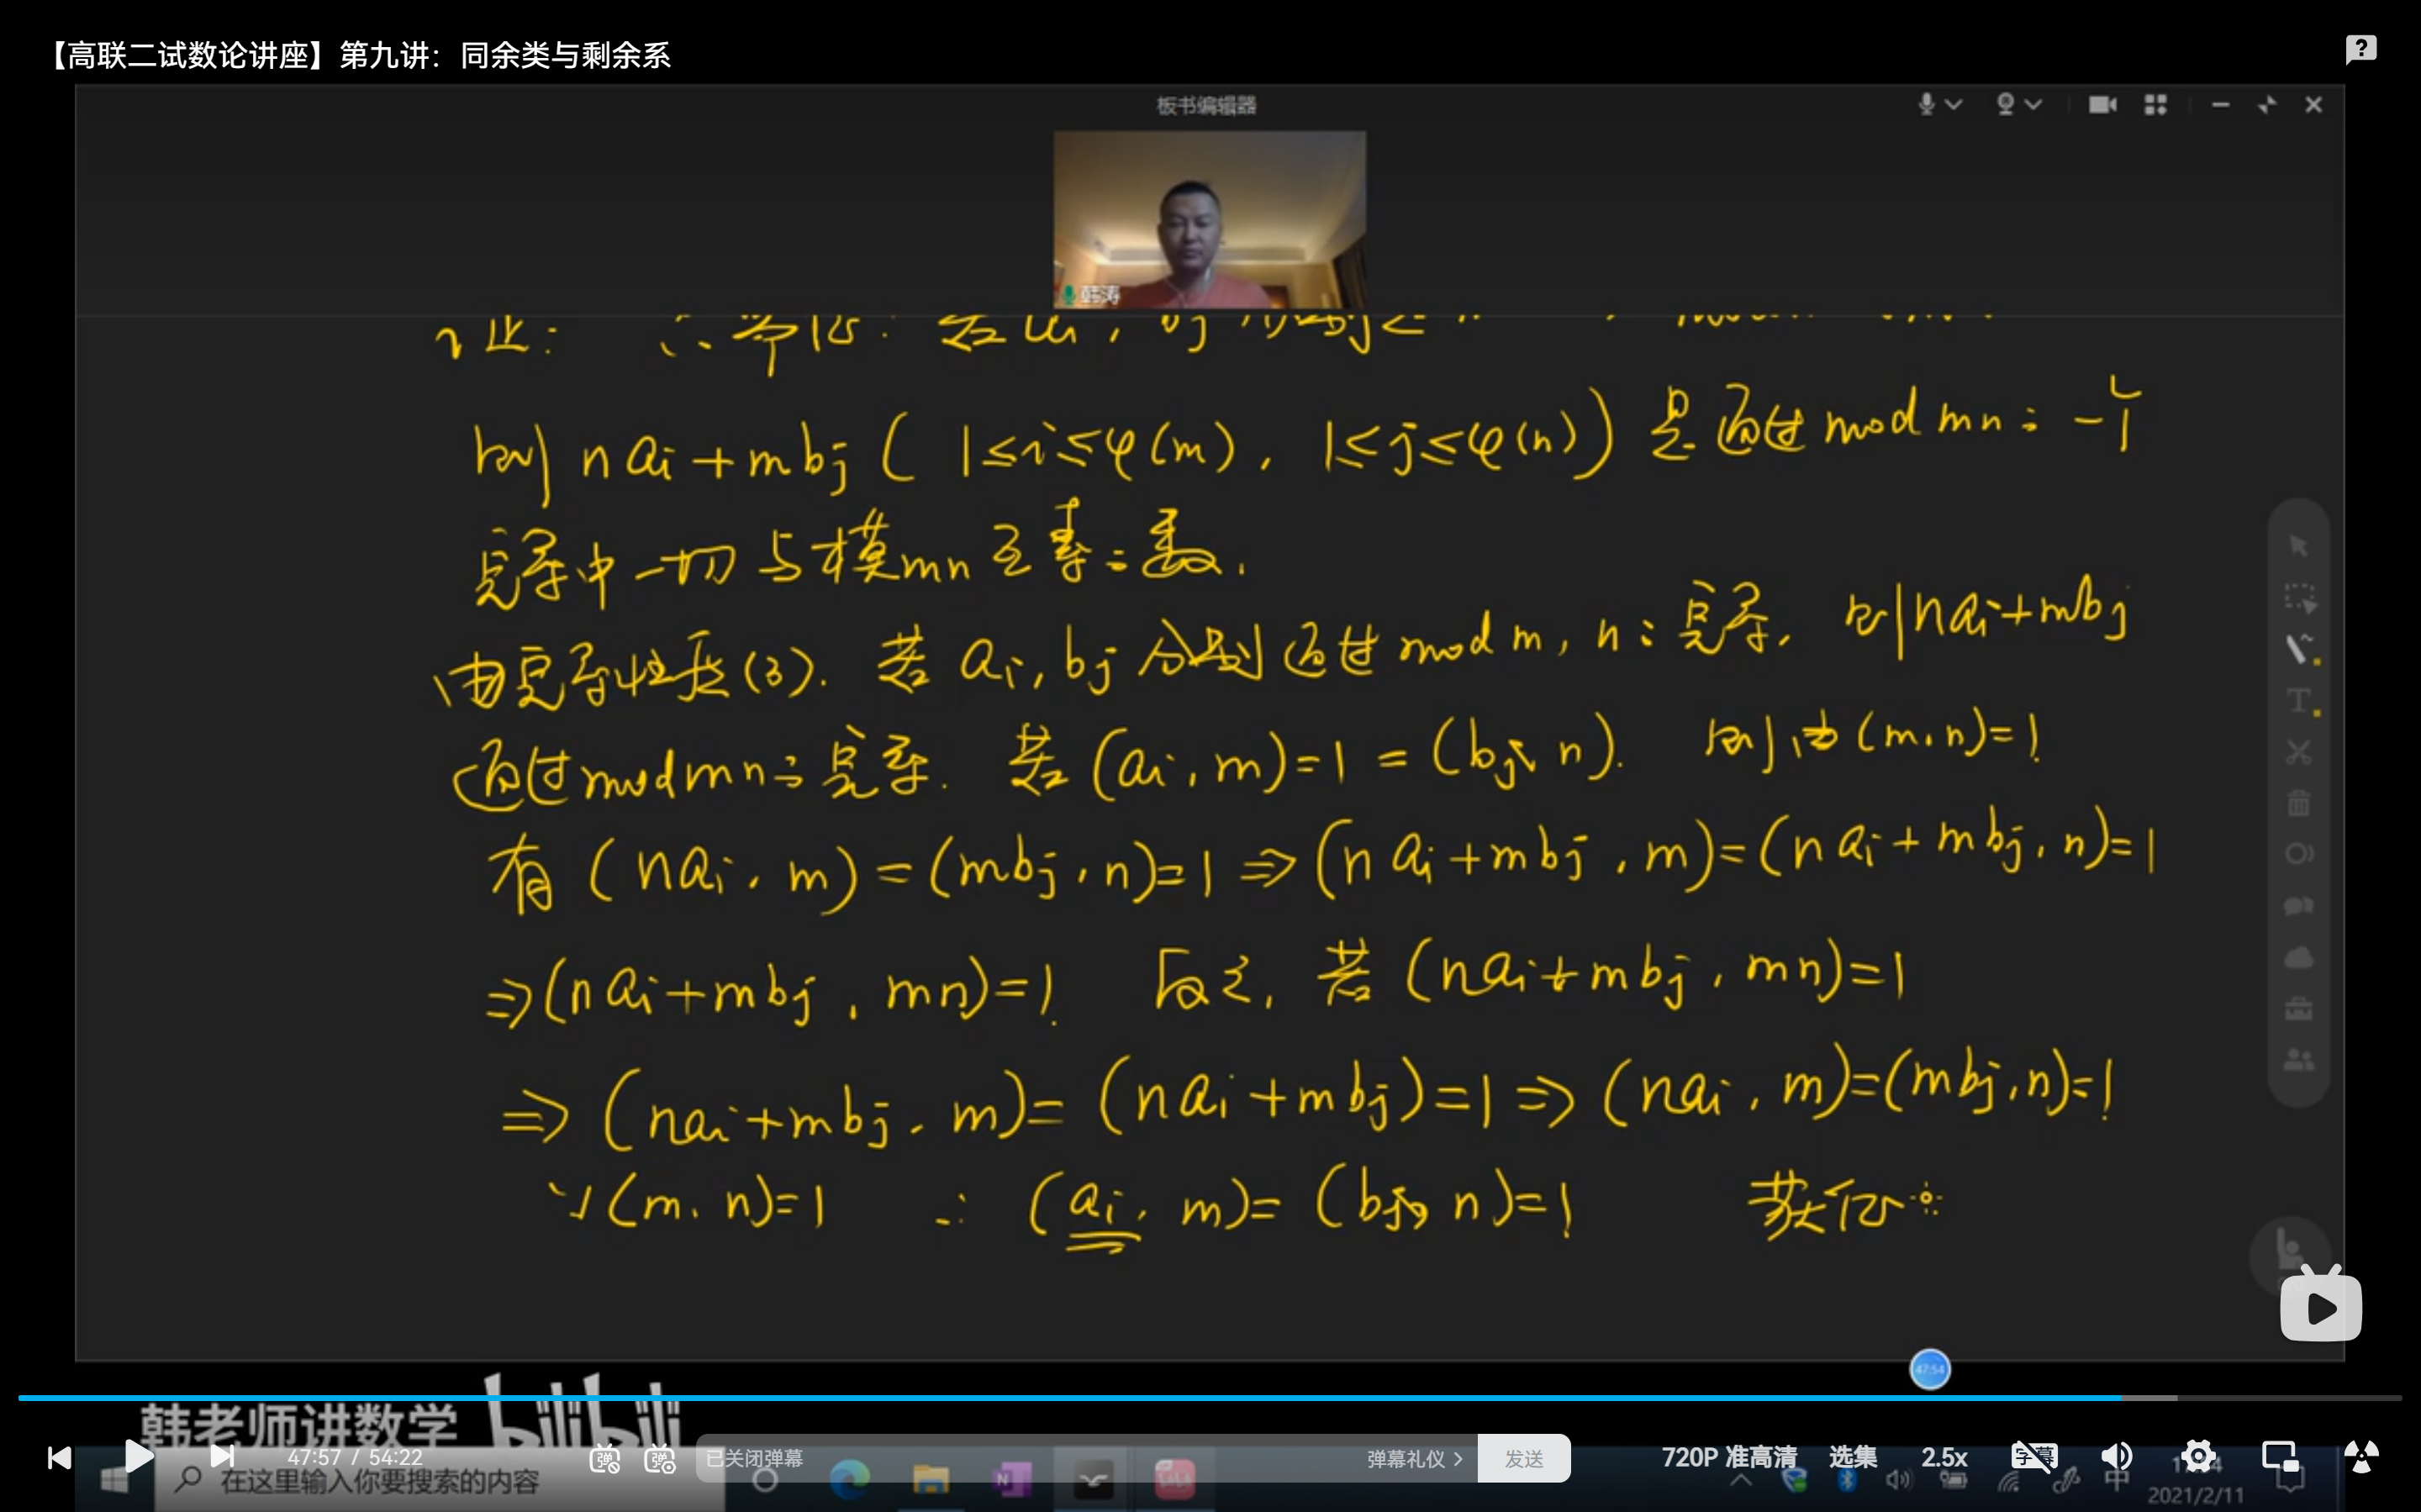 【高联二试数论讲座】第九讲：同余类与剩余系
板书编辑器
韩涛
则 nai + mbj ( 1≤i≤φ(m), 1≤j≤φ(n)) 是通过 mod mn 之一个
完系中一切与模mn互素之数.
由完系性质(3). 若 ai, bj 分别通过 mod m, n 之完系, 则 nai+mbj
通过 mod mn 之完系. 若 (ai, m)=1=(bj, n). 则由(m,n)=1
有 (nai, m)=(mbj, n)=1 ⇒(nai+mbj, m)=(nai+mbj, n)=1
⇒(nai+mbj, mn)=1 反之, 若 (nai+mbj, mn)=1
⇒ (nai+mbj, m)= (nai+mbj)=1 ⇒ (nai, m)=(mbj,n)=1
(m, n)=1 ∴ (ai, m)= (bj, n)=1 获证
47:54
韩老师讲数学 bilibili
47:57 / 54:22
已关闭弹幕
弹幕礼仪 >
发送
720P 准高清
选集
2.5x
在这里输入你要搜索的内容
中
2021/2/11